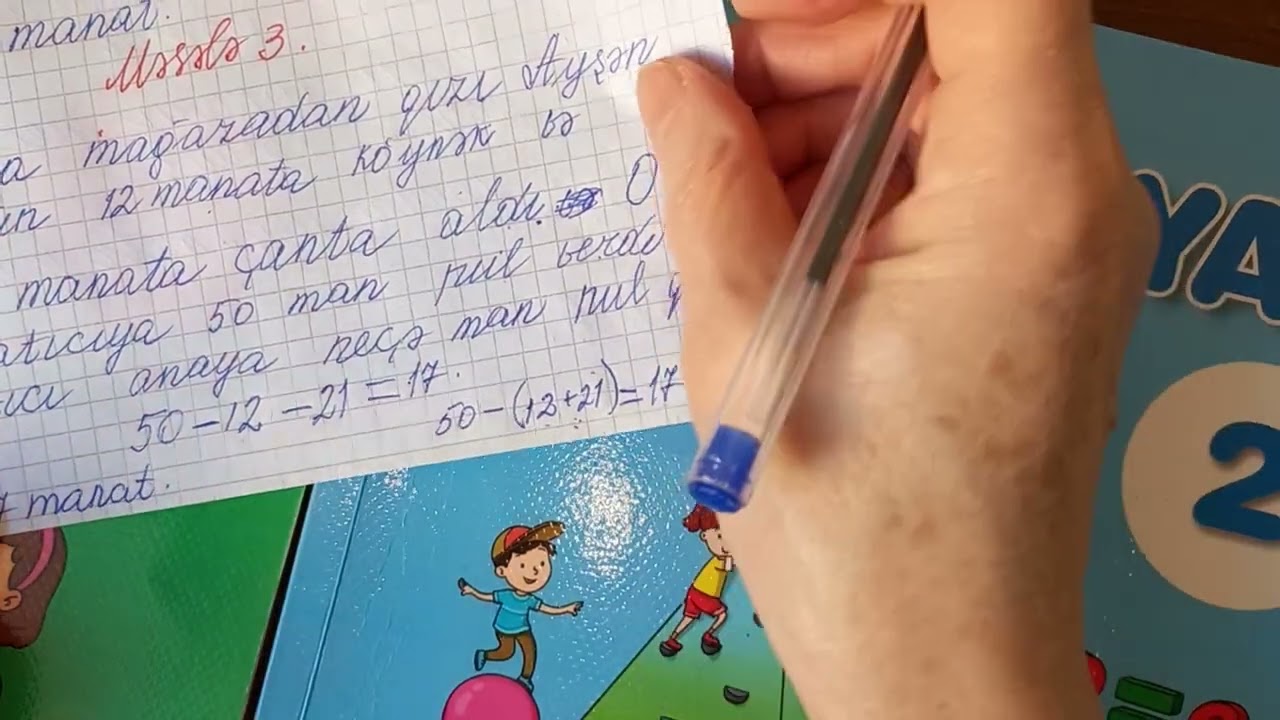 manat.
Məsələ 3.
a mağazadan qızı Ayşən
ın 12 manata köynək və
manata çanta aldı. O
atıcıya 50 man pul verdi
ıcı anaya neçə man pul
50-12-21=17. 50-(12+21)=17
manat.
YA
2